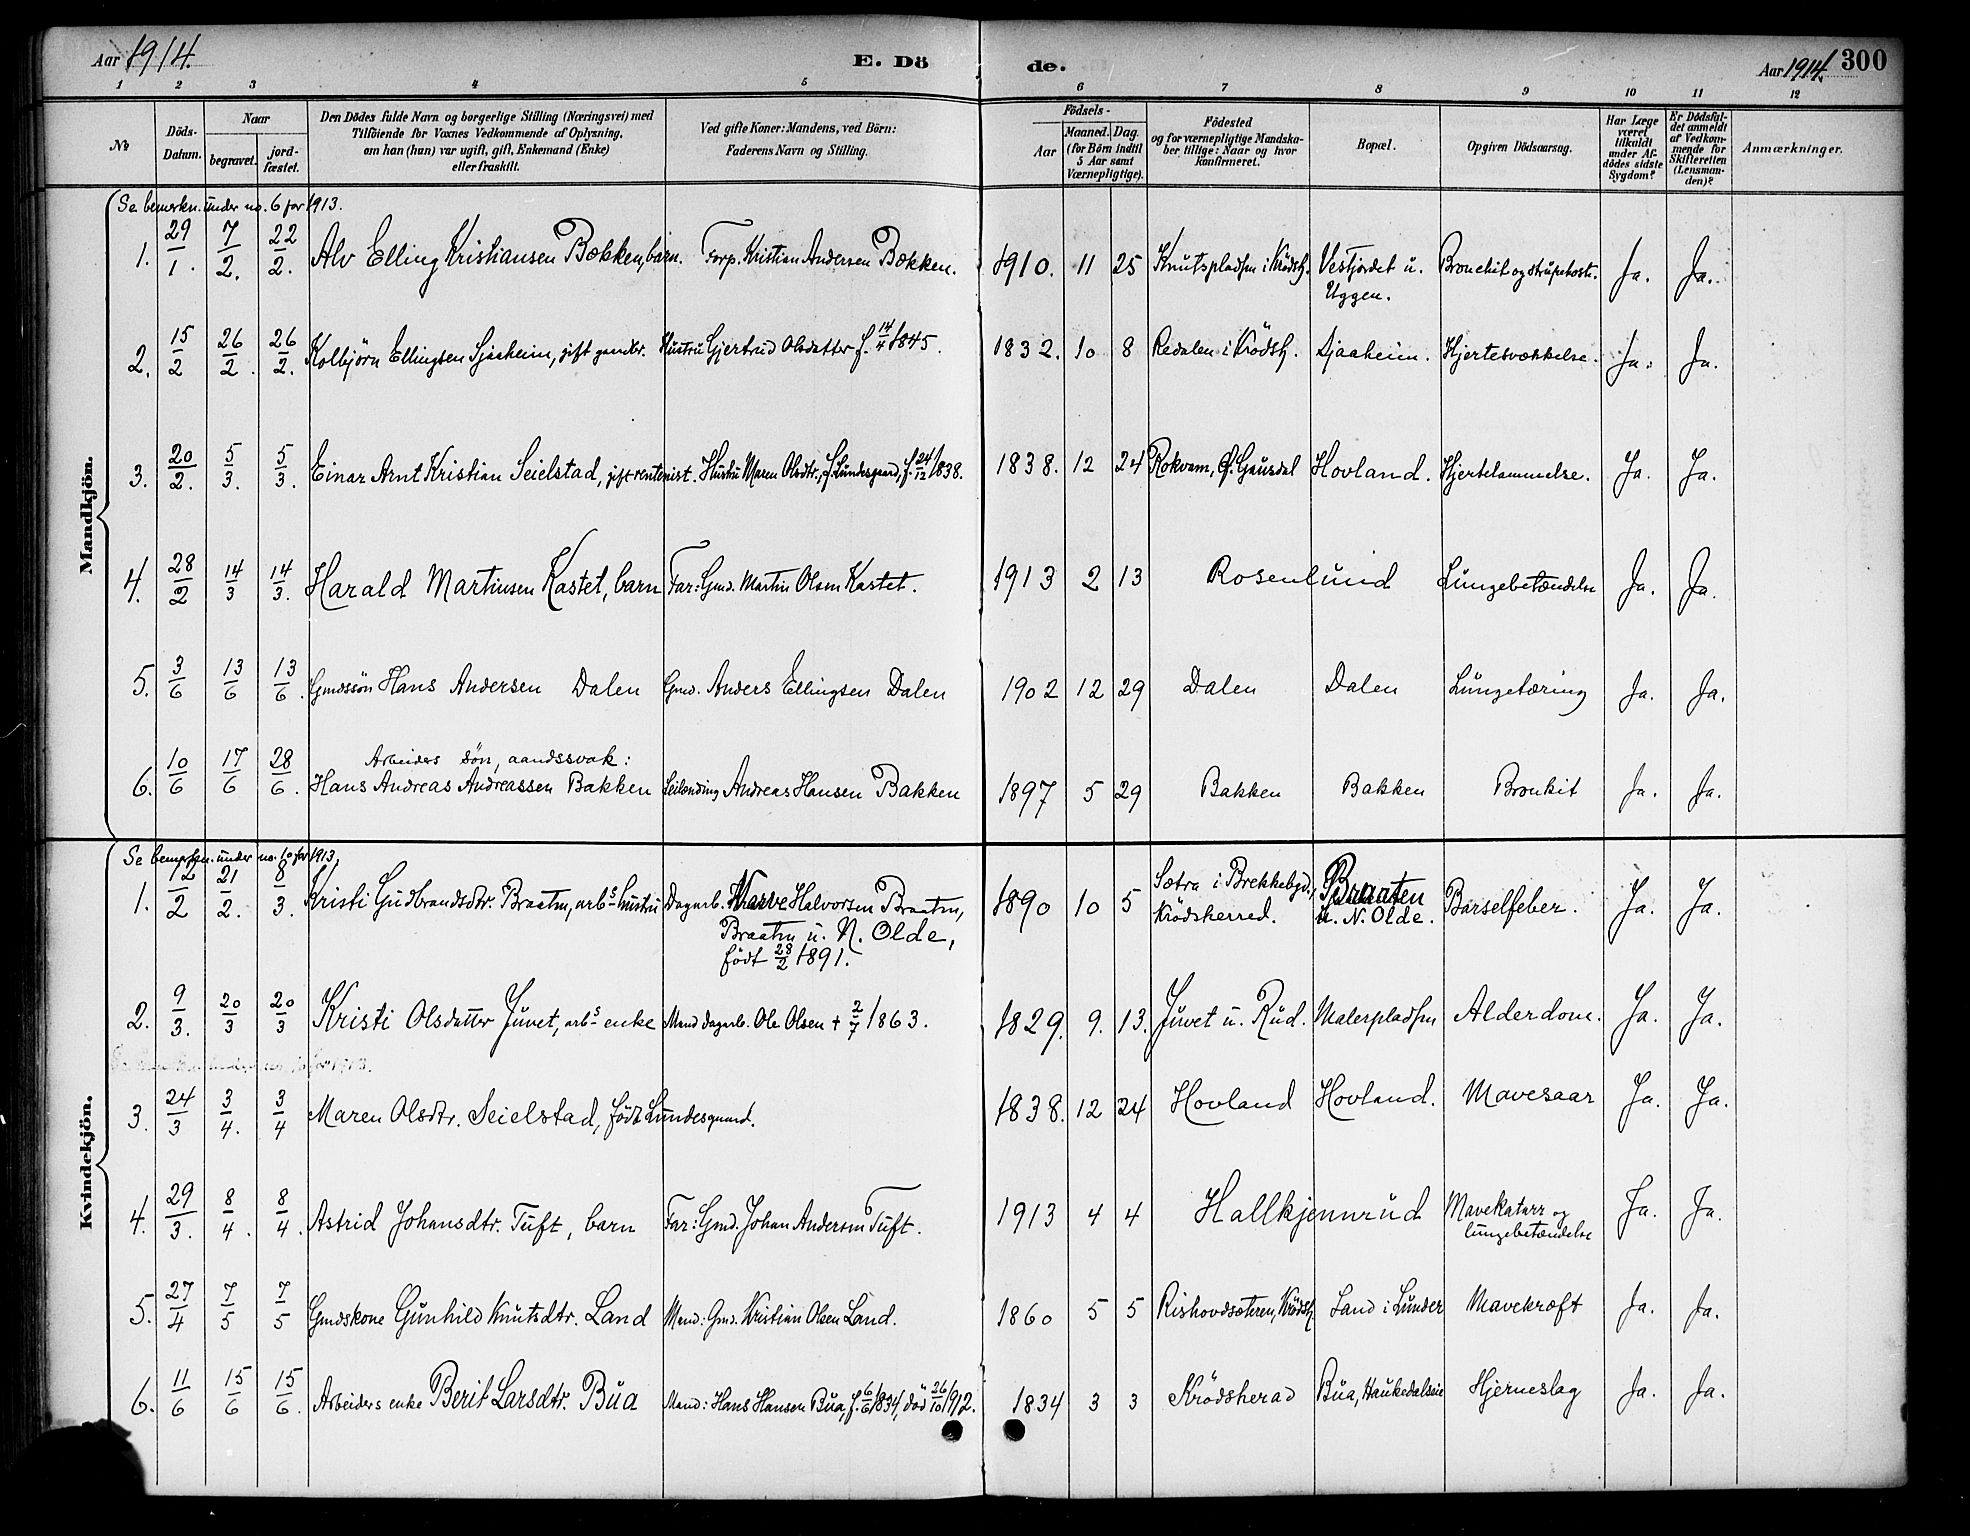 Aar 1914. E. Döde. Aar 1914. 300
1 2 3 4 5 6 7 8 9 10 11 12
No
Döds-Datum.
Naar
begravet. jordfæstet.
Den Dödes fulde Navn og borgerlige Stilling (Næringsvei) med
Tilföiende for Voxnes Vedkommende af Oplysning,
om han (hun) var ugift, gift, Enkemand (Enke)
eller fraskilt.
Ved gifte Koner: Mandens, ved Börn:
Faderens Navn og Stilling.
Födsels-
Aar Maaned. Dag.
(for Börn indtil 5 Aar samt Værnepligtige).
Födested
og for værnepligtige Mandskaber tillige: Naar og hvor konfirmeret.
Bopæl.
Opgiven Dödsaarsag.
Har Læge været tilkaldt under Afdödes sidste Sygdom?
Er Dödsfaldet anmeldt af Vedkommende for Skifteretten (Lensmanden)?
Anmærkninger.
Mandkjön.
Se bemerkn. under no. 6 for 1913.
1. 29/1. 7/2. 22/2. Alv Elling Kristiansen Bækken, barn. Forp. Kristian Andersen Bækken. 1910. 11 25 Knutspladsen i Krödsh. Vestjordet u. Uggen. Bronchit og strupehoste. Ja. Ja.
2. 15/2 26/2. 26/2. Kolbjörn Ellingsen Sjaaheim, gift gaardbr. Hustru Gjertrud Olsdatter f. 14/4 1845. 1832. 10 8 Redalen i Krödsh. Sjaaheim. Hjertesvækkelse. Ja. Ja.
3. 20/2. 5/3. 5/3. Einar Arnt Kristian Seielstad, gift rentenist. Hustru Maren Olsdtr., f. Lundesgaard, f. 24/12 1838. 1838. 12 24 Rokvam, Ø. Gausdal Hovland. Hjertelammelse. Ja. Ja.
4. 28/2 14/3 14/3. Harald Martinsen Kastet, barn Far: Gmd. Martin Olsen Kastet. 1913 2 13 Rosenlund Lungebetændelse Ja. Ja.
5. 3/6 13/6 13/6. Gmdssön Hans Andersen Dalen Gmd. Anders Ellingsen Dalen 1902 12 29 Dalen Dalen Lungetæring Ja. Ja.
6. 10/6 17/6 28/6. Arbeiders sön, aandssvak: Hans Andreas Andreassen Bakken Leilending Andreas Hansen Bakken 1897 5 29 Bakken Bakken Bronkit Ja. Ja.
Kvindekjön.
Se bemerkn. under no. 10 for 1913.
1. 12/2 21/2. 8/3. Kristi Gudbrandsdtr. Braatn, arbs hustru Dagarb. Narve Halvorsen Braatn, Braatn u. N. Olde, född 28/2 1891. 1890 10 5 Sætra i Brekkebygd., Krödsherred. Braaten u. N. Olde. Barselfeber. Ja. Ja.
2. 9/3. 20/3 20/3 Kristi Olsdatter Juvet, arbs enke Mand dagarb. Ole Olsen + 2/7 1863. 1829. 9. 13. Juvet u. Rud. Malerpladsen Alderdom. Ja. Ja.
3. 24/3 3/4. 3/4 Maren Olsdtr. Seielstad, född Lundesgaard. 1838. 12 24 Hovland Hovland. Mavesaar Ja. Ja.
4. 29/3. 8/4. 8/4. Astrid Johansdtr. Tuft, barn Far: Gmd. Johan Andersen Tuft. 1913 4 4 Hallkjennrud Mavekatarr og lungebetændelse Ja. Ja.
5. 27/4 7/5 7/5 Gmdskone Gunhild Knutsdtr. Land Mand: Gmd. Kristian Olsen Land. 1860 5 5 Rishovdsæteren, Krödsh. Land i Lunder Mavekræft Ja. Ja.
6. 11/6 15/6 15/6. Arbeiders enke Berit Larsdtr. Bua Mand: Hans Hansen Bua, f. 6/6 1834, död 26/10 1912. 1834 3 3 Krödsherad Bua, Haukedalseie Hjerneslag Ja. Ja.